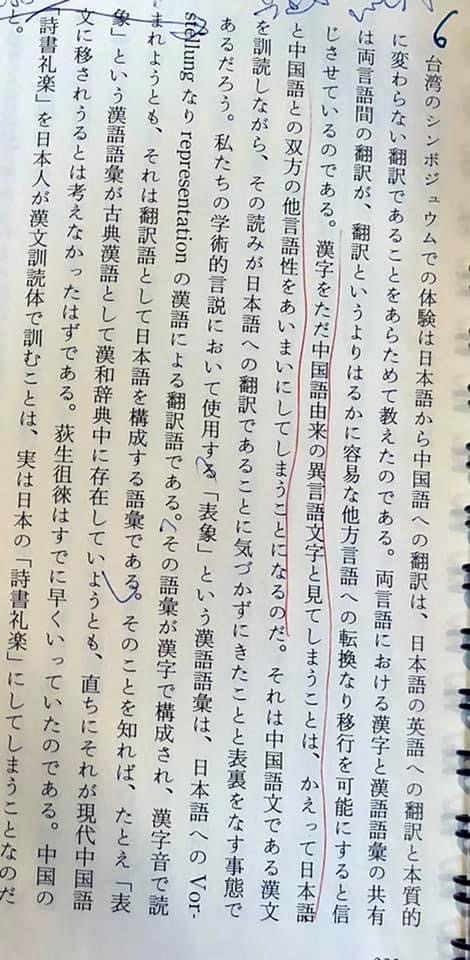 6
台湾のシンポジュウムでの体験は日本語から中国語への翻訳は、日本語の英語への翻訳と本質的
に変わらない翻訳であることをあらためて教えたのである。両言語における漢字と漢語語彙の共有
は両言語間の翻訳が、翻訳というよりはるかに容易な他方言語への転換なり移行を可能にすると信
じさせているのである。漢字をただ中国語由来の異言語文字と見てしまうことは、かえって日本語
と中国語との双方の他言語性をあいまいにしてしまうことになるのだ。それは中国語文である漢文
を訓読しながら、その読みが日本語への翻訳であることに気づかずにきたことと表裏をなす事態で
あるだろう。私たちの学術的言説において使用する「表象」という漢語語彙は、日本語への Vor-
stellung なり representation の漢語による翻訳語である。その語彙が漢字で構成され、漢字音で読
まれようとも、それは翻訳語として日本語を構成する語彙である。そのことを知れば、たとえ「表
象」という漢語語彙が古典漢語として漢和辞典中に存在していようとも、直ちにそれが現代中国語
文に移されうるとは考えなかったはずである。荻生徂徠はすでに早くいっていたのである。中国の
「詩書礼楽」を日本人が漢文訓読体で訓むことは、実は日本の「詩書礼楽」にしてしまうことなのだ
と。